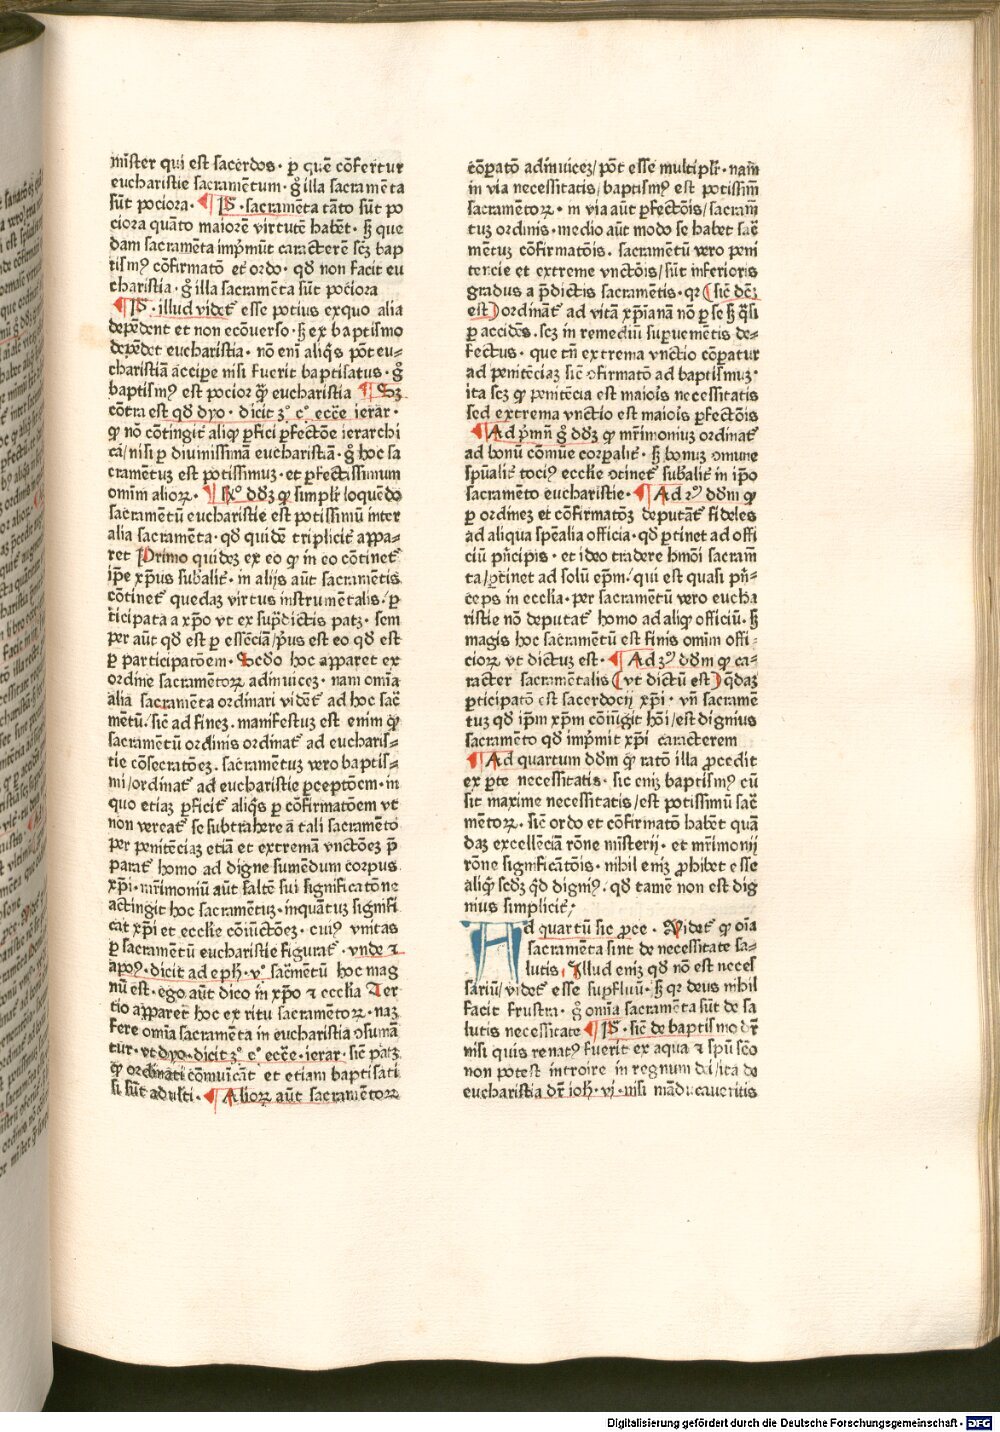 mīster qui est sacerdos· ꝑ quē cōfertur
eucharistie sacramētum· g̊ illa sacramēta
sūt pociora· ¶ P̄S· sacramēta tāto sūt po
ciora quāto maiorē virtutē habēt· ſꝫ que
dam sacramēta imp̄mūt caracterē scꝫ bap
tism⁹ cōfirmatō et ordo· qd̄ non facit eu
charistia· g̊ illa sacramēta sūt pociora
¶ P̄S· illud videt̄ esse potius exquo alia
depēdent et non ecōuerso· ſꝫ ex baptismo
depēdet eucharistia· nō enī aliq̄s pōt eu-
charistiā accipe nisi fuerit baptisatus· g̊
baptism⁹ est pocior q̄ eucharistia ¶ Sꝫ
cōtra est qd̄ dyo· dicit 3° c° ecc̄e ierar·
ꝙ nō cōtingit aliqꝫ ꝑfici ꝑfectōe ierarchi
cā/ nisi ꝑ diuinissimā eucharistiā· g̊ hoc sa
cramētuꝫ est potissimuꝫ· et ꝑfectissimum
omiīm alioꝝ· ¶ R̄° dd̄ꝫ ꝙ simplr̄ loquēdo
sacramētū eucharistie est potissimū inter
alia sacramēta· qd̄ quidē triplicit̄ appa-
ret Primo quideꝫ ex eo ꝙ in eo cōtinet̄
ip̄e xp̄us subalit̄· in alijs aūt sacramētis
cōtinet̄ quedaꝫ virtus instrumētalis· ꝑ
ticipata a xp̄o vt ex sup̄dictis patꝫ· sem
per aūt qd̄ est ꝑ essēciā/ p̄us est eo qd̄ est
ꝑ participatōem· Sc̄do hoc apparet ex
ordine sacramētoꝝ adinuiceꝫ· nam omīa
alia sacramēta ordinari vidēt̄ ad hoc sac̄
mētū· sic̄ ad fineꝫ· manifestuꝫ est enim ꝙ
sacramētū ordinis ordinat̄ ad eucharis-
tie cōsecratōeꝫ· sacramētuꝫ vero baptis-
mi/ ordinat̄ ad eucharistie ꝑceptōem· in
quo etiaꝫ ꝑficit̄ aliq̄s ꝑ cōfirmatōem vt
non vereat̄ se subtrahere a tali sacramēto
per penitēciaꝫ etiā et extremā vnctōeꝫ p̄
parat̄ homo ad digne sumēdum corpus
xp̄i· mr̄imoniū aūt saltē sui significatōne
actingit hoc sacramētuꝫ· inquātuꝫ signifi
cat xp̄i et ecclie cōiūctōeꝫ· cui⁹ vnitas
ꝑ sacramētū eucharistie figurat̄· vnde ⁊
apo⁹· dicit ad eph· v° sac̄mētū hoc mag
nū est· ego aūt dico in xp̄o ⁊ ecclia Ter
tio apparet hoc ex ritu sacramētoꝝ· naꝫ
fere omīa sacramēta in eucharistia ꝯsumā
tur· vt dyo· dicit 3° c° ecc̄e· ierar· sic̄ patꝫ
ꝙ ordinati cōmuīcāt et etiam baptisati
si sūt adulti· ¶ Alioꝝ aūt sacramētoꝝ
cōꝑatō adinuiceꝫ/ pōt esse multiplr̄· nam̄
in via necessitatis/ baptism⁹ est potissim̄
sacramētoꝝ· in via aūt ꝑfectōis/ sacram̄
tuꝫ ordinis· medio aūt modo se habet sac̄
mētuꝫ cōfirmatōis· sacramētū vero peni
tencie et extreme vnctōis/ sūt inferioris
gradus a p̄dictis sacramētis· qꝛ (sic̄ dc̄ꝫ
est) ordināt̄ ad vitā xp̄ianā nō ꝑ se ſꝫ q̄si
ꝑ accidēs· scꝫ in remediū suꝑuemētis de-
fectus· que tn̄ extrema vnctio cōꝑatur
ad penitēciaꝫ sic̄ ꝯfirmatō ad baptismuꝫ·
ita scꝫ ꝙ penitēcia est maioīs necessitatis
sed extrema vnctio est maioīs ꝑfectōis
¶ Ad p̄mū g̊ dd̄ꝫ ꝙ mr̄imoniuꝫ ordinat̄
ad bonū cōmūe corꝑalit̄· ſꝫ bonuꝫ ꝯmune
spūalit̄ toci⁹ ecclie ꝯtinet̄ subalit̄ in ip̄o
sacramēto eucharistie· ¶ Ad 2ᵐ dd̄m ꝙ
ꝑ ordineꝫ et cōfirmatōꝫ deputāt̄ fideles
ad aliqua spēalia officia· qd̄ ꝑtinet ad offi
ciū pn̄cipis· et ideo tradere hmōi sacram̄
ta/ ꝑtinet ad solū ep̄m· qui est quasi pn̄-
ceps in ecclia· per sacramētū vero eucha
ristie nō deputat̄ homo ad aliqꝫ officiū· ſꝫ
magis hoc sacramētū est finis omīm offi-
cioꝝ vt dictuꝫ est· ¶ Ad 3ᵐ dd̄m ꝙ ca-
racter sacramētalis (vt dictū est) q̄daꝫ
ꝑticipatō est sacerdocij xp̄i· vn̄ sacramē
tuꝫ qd̄ ip̄m xp̄m cōiūgit hōi/ est dignius
sacramēto qd̄ imp̄mit xp̄i caracterem
¶ Ad quartum dd̄m ꝙ ratō illa ꝓcedit
ex ꝑte necessitatis· sic enīꝫ baptism⁹ cū
sit maxime necessitatis/ est potissimū sac̄
mētoꝝ· sic̄ ordo et cōfirmatō habēt quā
daꝫ excellēciā rōne mīsterij· et mr̄imonij
rōne significatōis· nihil enīꝫ ꝓhibet esse
aliqꝫ scd̄ꝫ qd̄ digni⁹· qd̄ tamē non est dig
nius simplicit̄/
Ad quartū sic ꝓce· Videt̄ ꝙ oīa
sacramēta sint de necessitate sa-
lutis, Illud enīꝫ qd̄ nō est neces
sariū/ videt̄ esse suꝑfluū· ſꝫ qꝛ deus nihil
facit frustra· g̊ omīa sacramēta sūt de sa
lutis necessitate ¶ P̄S· sic̄ de baptismo dr̄
nisi quis renat⁹ fuerit ex aqua ⁊ spū sc̄o
non potest introire in regnum dei/ ita de
eucharistia dr̄ ioh· vj· nisi mādūcaueritis
Digitalisierung gefördert durch die Deutsche Forschungsgemeinschaft - DFG